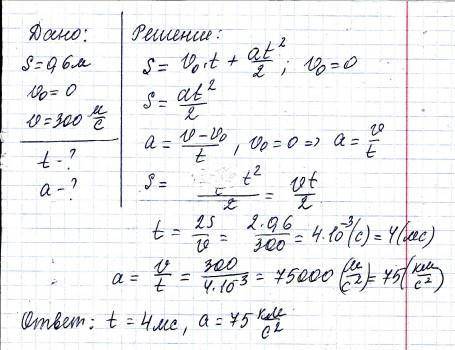 Дано:
S=0,6м
v₀=0
v=300 м/с
t-?
a-?
Решение:
S = v₀·t + at²/2; v₀=0
S = at²/2
a = (v-v₀)/t, v₀=0 => a = v/t
S = t²/2 = vt/2
t = 2S/v = 2·0,6/300 = 4·10⁻³(с) = 4(мс)
a = v/t = 300/4·10⁻³ = 75000 (м/с²) = 75 (км/с²)
Ответ: t = 4мс, a = 75 км/с²